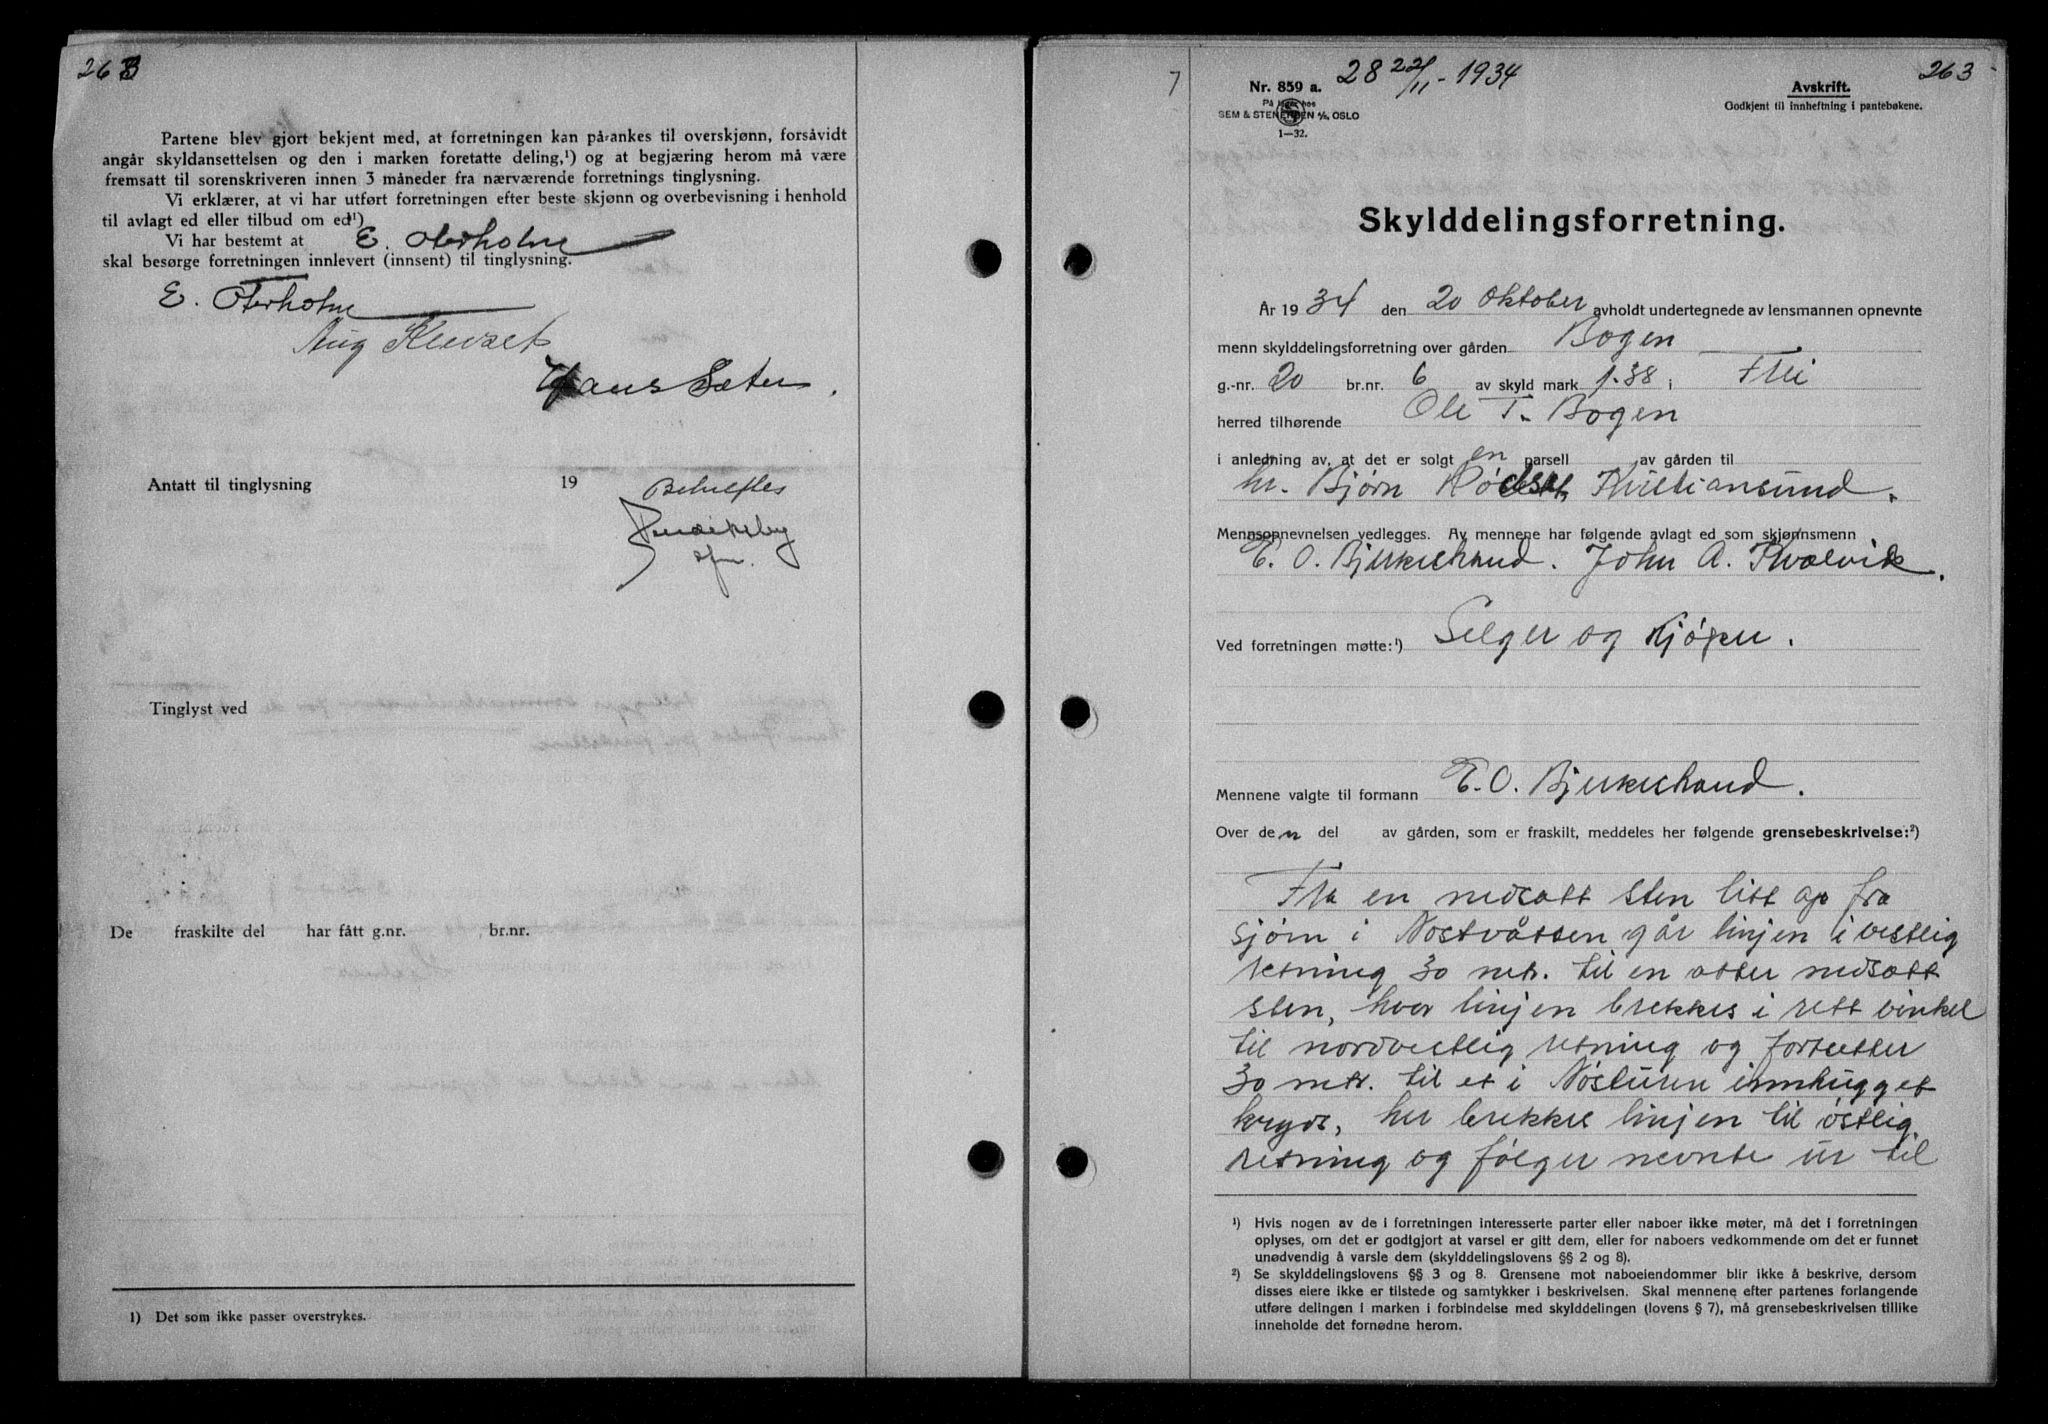 263
Partene blev gjort bekjent med, at forretningen kan påankes til overskjønn, forsåvidt
angår skyldansettelsen og den i marken foretatte deling,¹) og at begjæring herom må være
fremsatt til sorenskriveren innen 3 måneder fra nærværende forretnings tinglysning.
Vi erklærer, at vi har utført forretningen efter beste skjønn og overbevisning i henhold
til avlagt ed eller tilbud om ed¹)
Vi har bestemt at E. Oterholm
skal besørge forretningen innlevert (innsent) til tinglysning.
E. Oterholm
Aug
Hans Sæter.
Antatt til tinglysning 19
Bekreftes
Tinglyst ved
De fraskilte del har fått g.nr. , br.nr.
1) Det som ikke passer overstrykes.
7
28 22/11-1934
263
Nr. 859 a.
På lager hos
SEM & STENERSEN A/S, OSLO
1—32.
Avskrift.
Godkjent til innheftning i pantebøkene.
Skylddelingsforretning.
År 1934 den 20 Oktober avholdt undertegnede av lensmannen opnevnte
menn skylddelingsforretning over gården Bogen
g.-nr. 20 br.nr. 6 av skyld mark 1.38 i Frei
herred tilhørende Ole T. Bogen
i anledning av, at det er solgt en parsell av gården til
hr. Bjørn Rødset, Kristiansund.
Mennsopnevnelsen vedlegges. Av mennene har følgende avlagt ed som skjønnsmenn
E. O. Bjerkestrand. John A. Kvalvik.
Ved forretningen møtte:¹) Selger og kjøper.
Mennene valgte til formann E. O. Bjerkestrand.
Over den del av gården, som er fraskilt, meddeles her følgende grensebeskrivelse:²)
Fra en nedsatt sten litt op fra
sjøen i Nostvåtten går linjen i vestlig
retning 30 mtr. til en atter nedsatt
sten, hvor linjen brekkes i rett vinkel
til nordvestlig retning og fortsetter
30 mtr. til et i Nøsturen innhugget
kryds, her brekkes linjen til østlig
retning og følger nevnte ur til
¹) Hvis nogen av de i forretningen interesserte parter eller naboer ikke møter, må det i forretningen
oplyses, om det er godtgjort at varsel er gitt dem, eller for naboers vedkommende om det er funnet
unødvendig å varsle dem (skylddelingslovens §§ 2 og 8).
²) Se skylddelingslovens §§ 3 og 8. Grensene mot naboeiendommer blir ikke å beskrive, dersom
disses eiere ikke er tilstede og samtykker i beskrivelsen. Skal mennene efter partenes forlangende
utføre delingen i marken i forbindelse med skylddelingen (lovens § 7), må grensebeskrivelsen tillike
inneholde det fornødne herom.